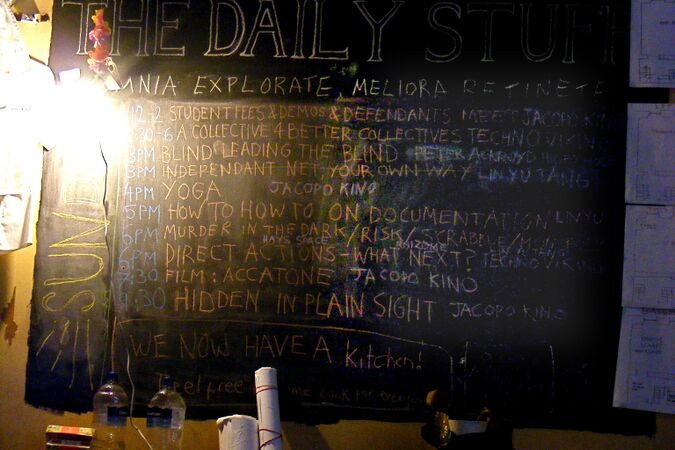 THE DAILY STUFF
OMNIA EXPLORATE, MELIORA RETINETE
SUND
12-2 STUDENT FEES & DEMOS & DEFENDANTS MEET JACOPO KINO
:30-6 A COLLECTIVE 4 BETTER COLLECTIVES TECHNO VIKING
3PM BLIND LEADING THE BLIND PETER ACKROYD
3PM INDEPENDANT NET, YOUR OWN WAY LIN YU TANG
4PM YOGA JACOPO KINO
5PM HOW TO HOW TO ON DOCUMENTATION LIN YU
6PM MURDER IN THE DARK/RISK/SCRABBLE/
HAY'S SPACE
6PM DIRECT ACTIONS-WHAT NEXT? TECHNO VIKING
7:30 FILM: ACCATONE JACOPO KINO
9:30 HIDDEN IN PLAIN SIGHT JACOPO KINO
WE NOW HAVE A kitchen!
Feel free me cook for everyone